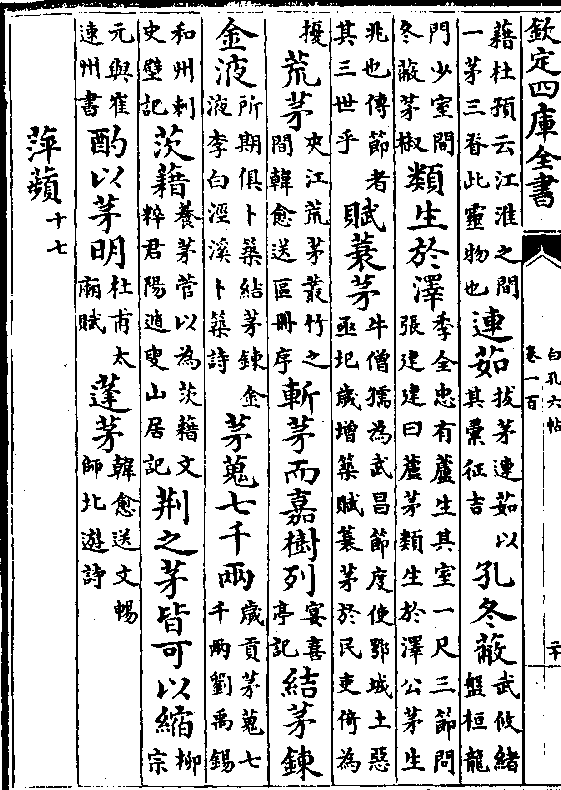 欽定四庫全書 白孔六帖 卷一百 二十
藉杜預云江淮之間一茅三脊此靈物也 連茹 拔茅連茹以其彙征吉 孔冬蔽 武攸緒盤桓龍
門少室間冬蔽茅椒 類生於澤 李全忠有蘆生其室一尺三節問張建建曰蘆茅類生於澤公茅生
兆也傳節者其三世乎 賦蓑茅 牛僧孺為武昌節度使鄂城土惡亟圮歲增築賦蓑茅於民吏倚為
擾 荒茅 夾江荒茅叢竹之間韓愈送區冊序 斬茅而嘉樹列 宴喜亭記 結茅鍊
金液 所期俱卜築結茅鍊金液李白涇溪卜築詩 茅蒐七千兩 歲貢茅蒐七千兩劉禹錫
和州刺史壁記 茨藉 養茅菅以為茨藉文粹君陽遁叟山居記 荆之茅皆可以縮 柳宗
元與崔連州書 酌以茅明 杜甫太廟賦 蓬茅 韓愈送文暢師北遊詩
萍蘋 十七